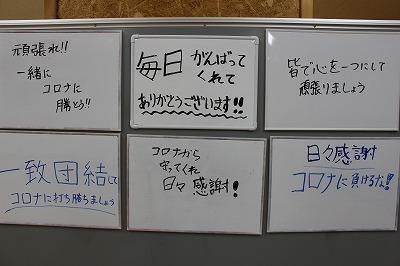 頑張れ!!
一緒に
コロナに
勝とう!!
毎日 がんばって
くれて
ありがとうございます!!
皆で心を一つにして
頑張りましょう
一致団結して
コロナに打ち勝ちましょう
コロナから
守ってくれ
日々感謝!
日々感謝
コロナに負けるな!!